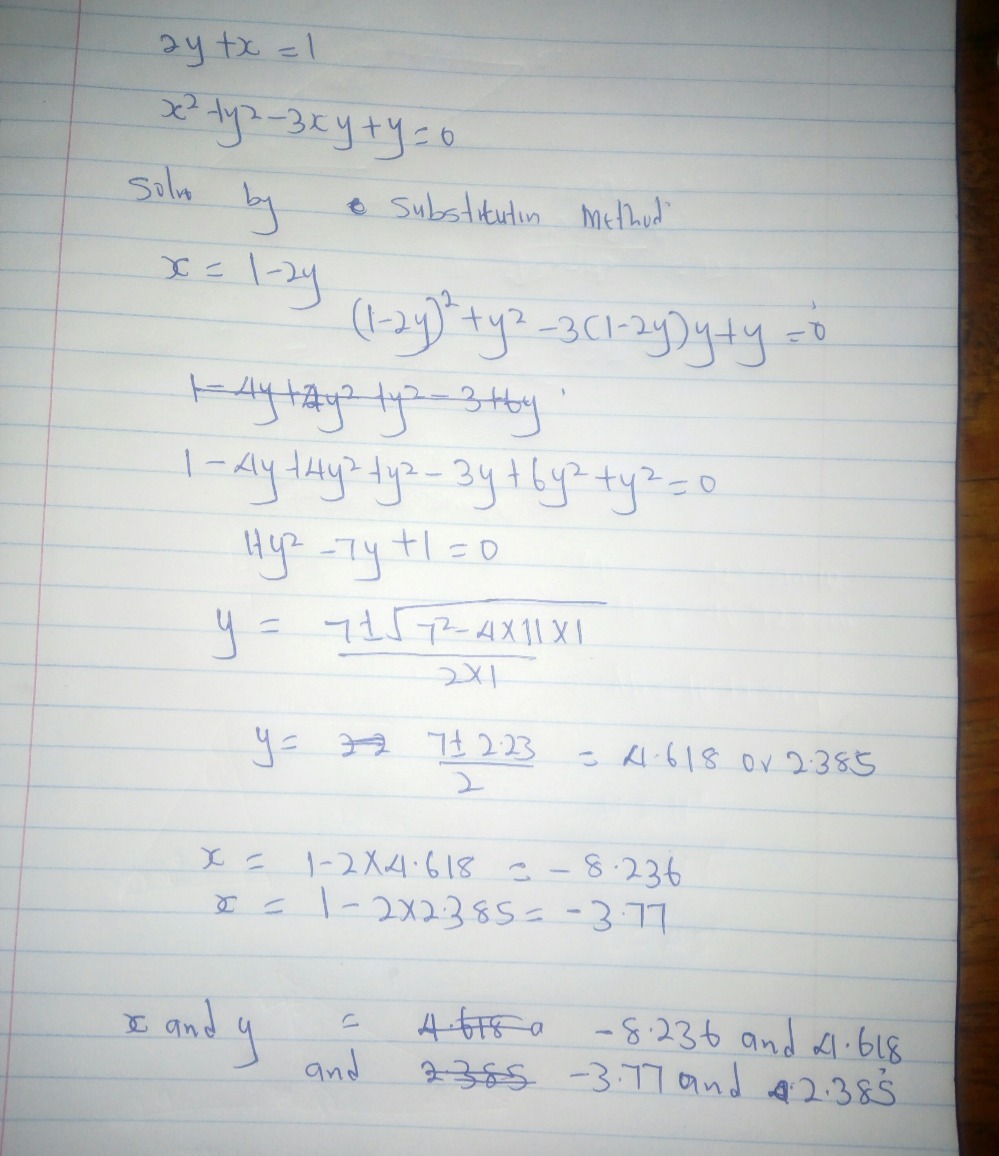 2y + x = 1
x² + y² - 3xy + y = 0
Solve by substitutin method
x = 1 - 2y
(1-2y)² + y² - 3(1-2y)y + y = 0
1 - 4y + 4y² + y² - 3 + 6y
1 - 4y + 4y² + y² - 3y + 6y² + y² = 0
11y² - 7y + 1 = 0
y = 7 ± √7² - 4×11×1
2×1
y = 7 ± 2.23 = 4.618 or 2.385
2
x = 1 - 2×4.618 = -8.236
x = 1 - 2×2.385 = -3.77
x and y = 4.618 a -8.236 and 4.618
and 2385 -3.77 and 2.385